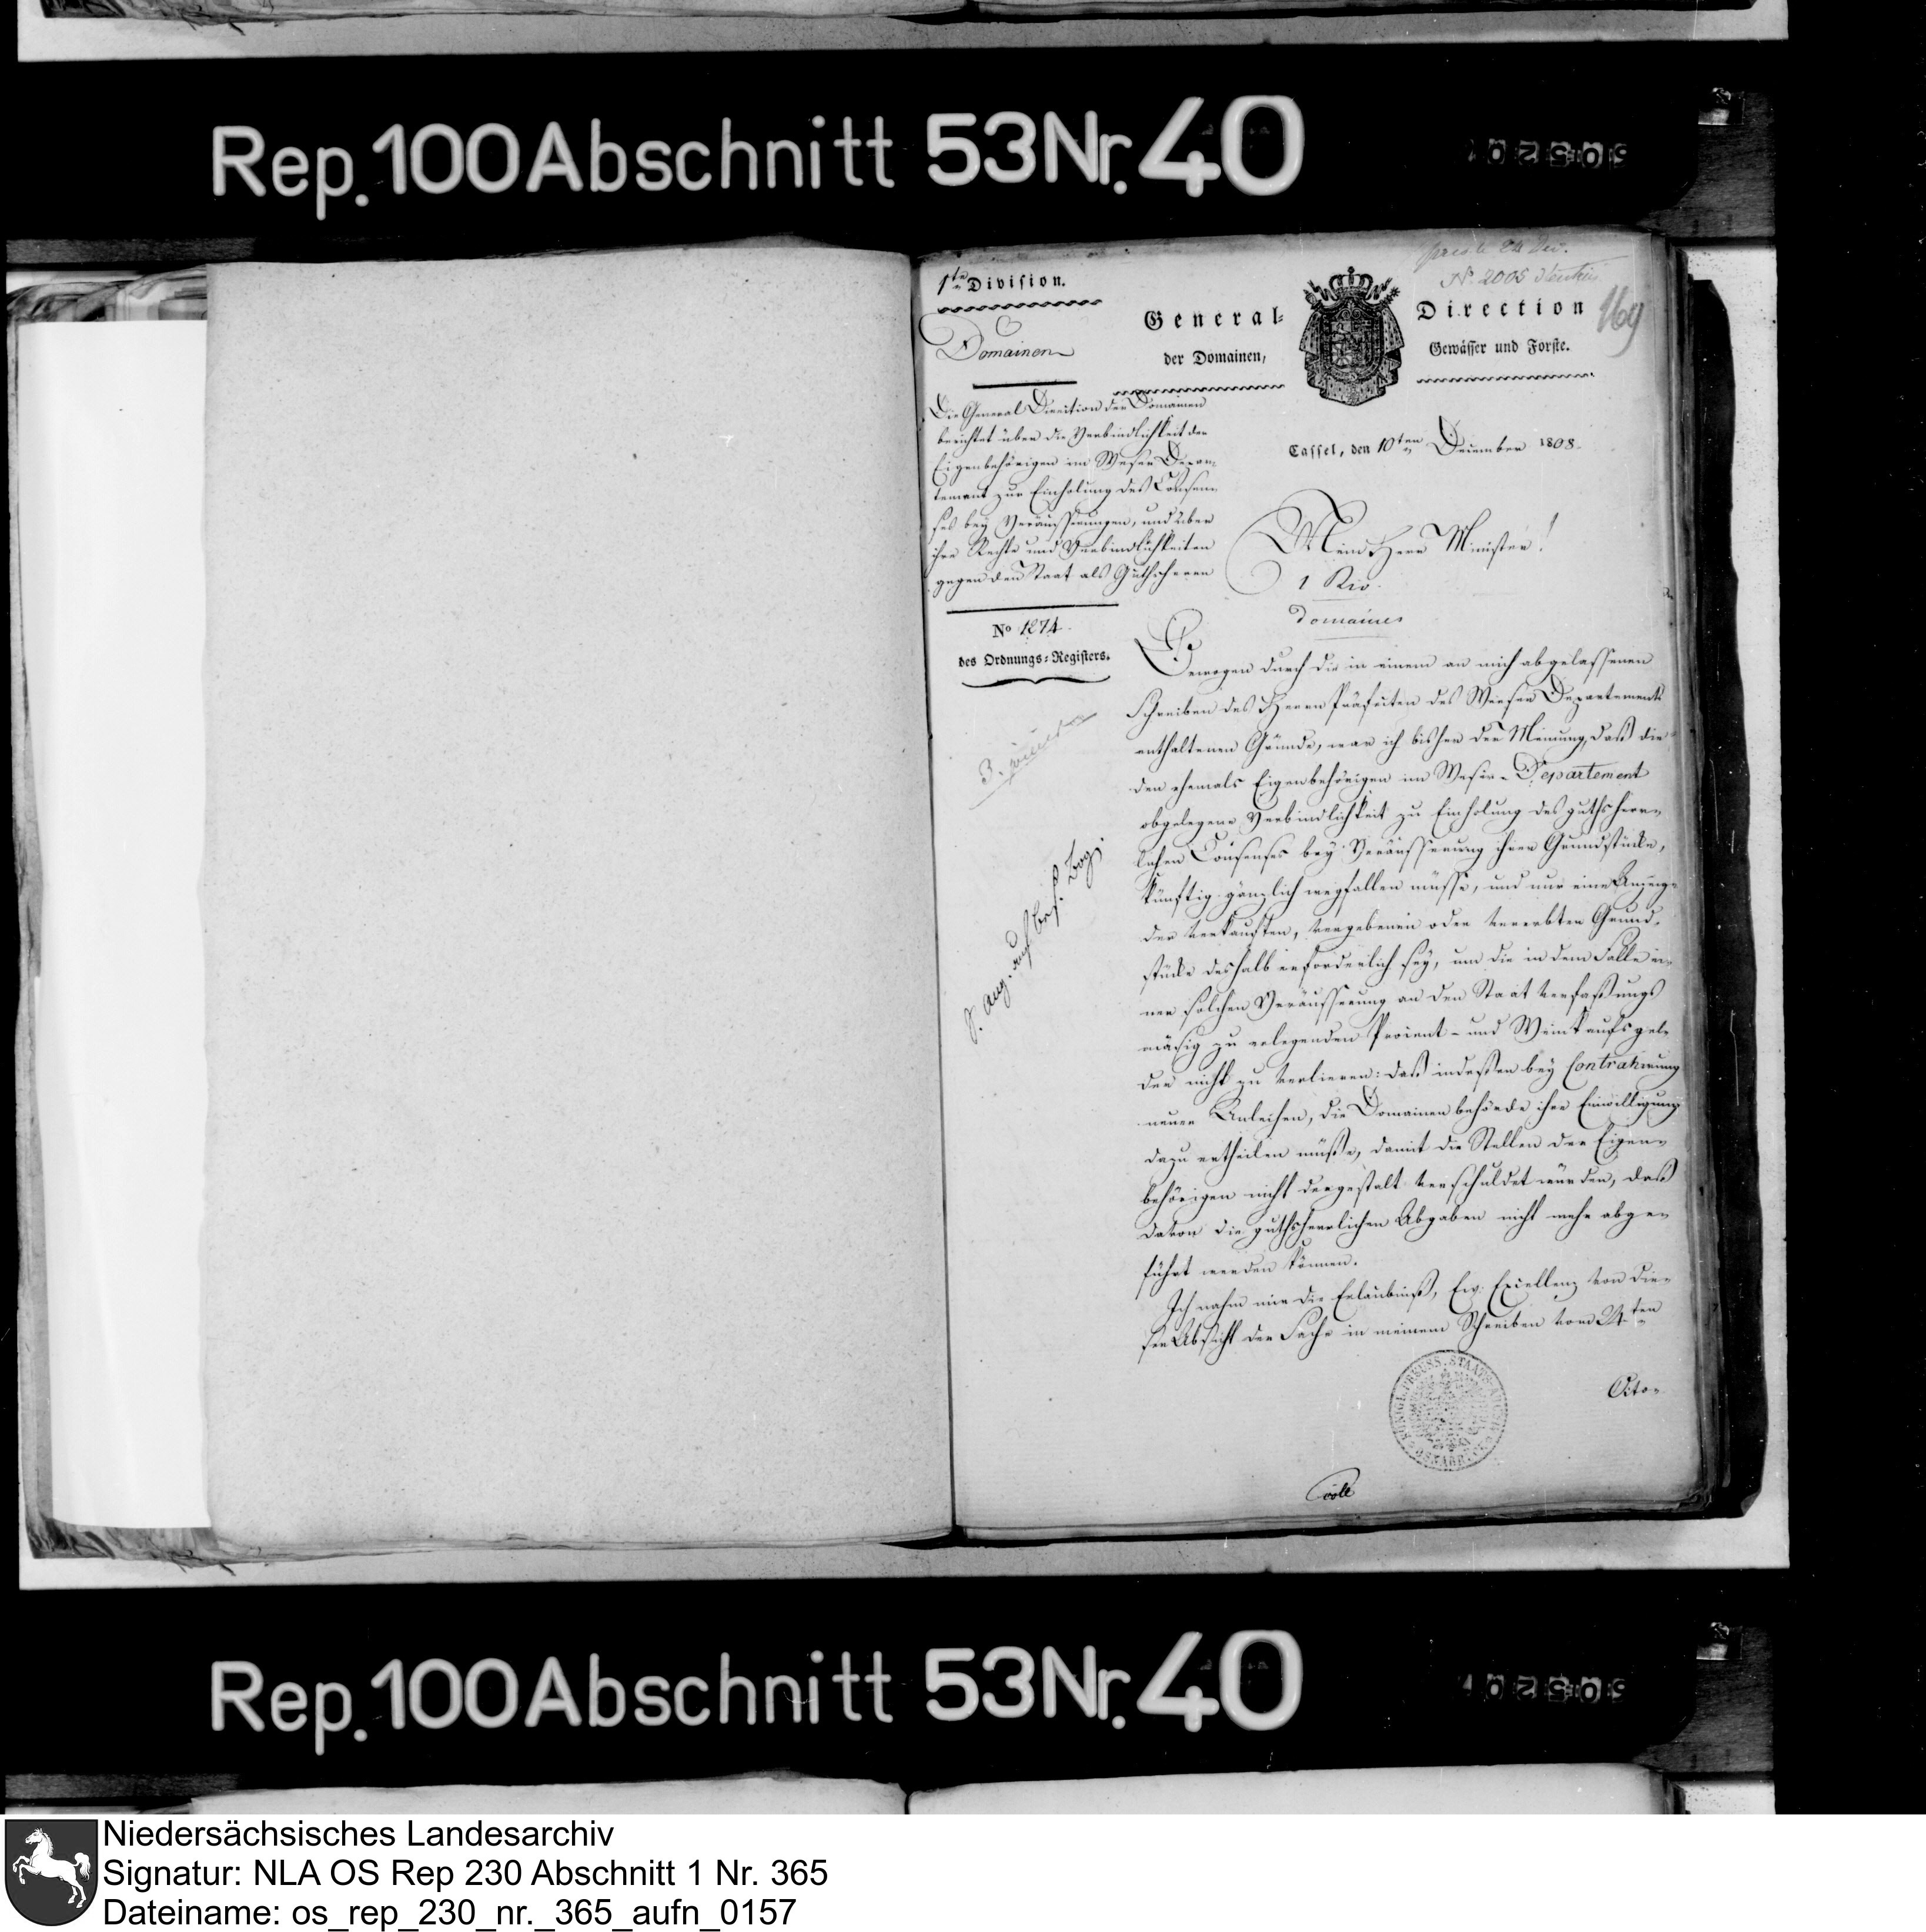 Rep. 100 Abschnitt 53 Nr. 40
1te Division.
Domainen
Die General Direction der Domainen
berichtet über die Verbindlichkeit der
Eigenbehörigen im Weser Depar-
tement zur Einholung des Consen-
ses bey Veräusserungen, und über
ihre Rechte und Verbindlichkeiten
gegen den Staat als Guthsherrn
No 1274.
des Ordnungs-Registers.
No 2005
169
General-Direction
der Domainen, Gewässer und Forste.
Cassel, den 10ten December 1808.
Mein Herr Minister!
1 Div.
Domaines
Bewogen durch die in einem an mich abgelassenen
Schreiben des Herrn Präfecten des Weser Departements
enthaltenen Gründe, war ich bisher der Meinung, daß die
den ehemals Eigenbehörigen im Weser-Departement
obgelegene Verbindlichkeit zu Einholung des guthsherr-
lichen Consenses bey Veräusserung ihrer Grundstücke,
künftig gänzlich wegfallen müsse, und nur eine Anzeige
der verkauften, vergebenen oder vererbten Grund-
stücke deshalb erforderlich sey, um die in dem Falle ei-
ner solchen Veräusserung an den Staat verfaßungs
mäsig zu erlegenden Procent- und Weinkaufsgel-
der nicht zu verlieren: daß indeßen bey Contrahirung
neuer Anleihen, die Domainenbehörde ihre Einwilligung
dazu ertheilen müßte, damit die Stellen der Eigen-
behörigen nicht dergestalt verschuldet würden, daß
davon die guthsherrlichen Abgaben nicht mehr abge-
führt werden können.
Ich nahm mir die Erlaubniß, Ew. Excellenz von die-
ser Absicht der Sache in meinem Schreiben vom 24ten
Octo-
KÖNIGL. PREUSS. STAATS-ARCHIV
Rep. 100 Abschnitt 53 Nr. 40
Niedersächsisches Landesarchiv
Signatur: NLA OS Rep 230 Abschnitt 1 Nr. 365
Dateiname: os_rep_230_nr._365_aufn_0157